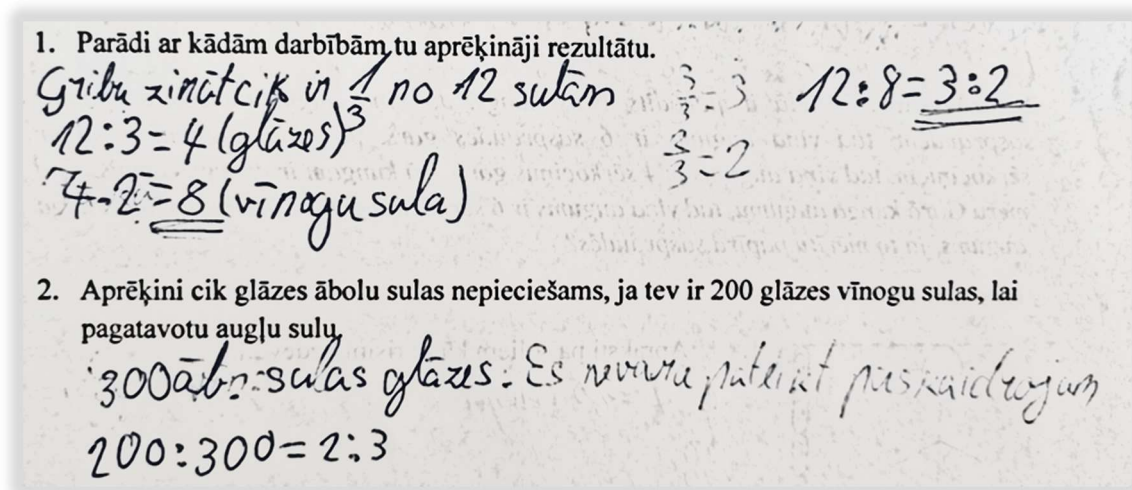 1. Parādi ar kādām darbībām tu aprēķināji rezultātu.
Gribu zināt cik ir 1/3 no 12 sulām
3/3 = 3
12:8=3:2
12:3=4 (glāzes)
3/3 = 2
4·2=8 (vīnogu sula)
2. Aprēķini cik glāzes ābolu sulas nepieciešams, ja tev ir 200 glāzes vīnogu sulas, lai
pagatavotu augļu sulu.
300 āb. sulas glāzes. Es nevaru pateikt
200:300=2:3